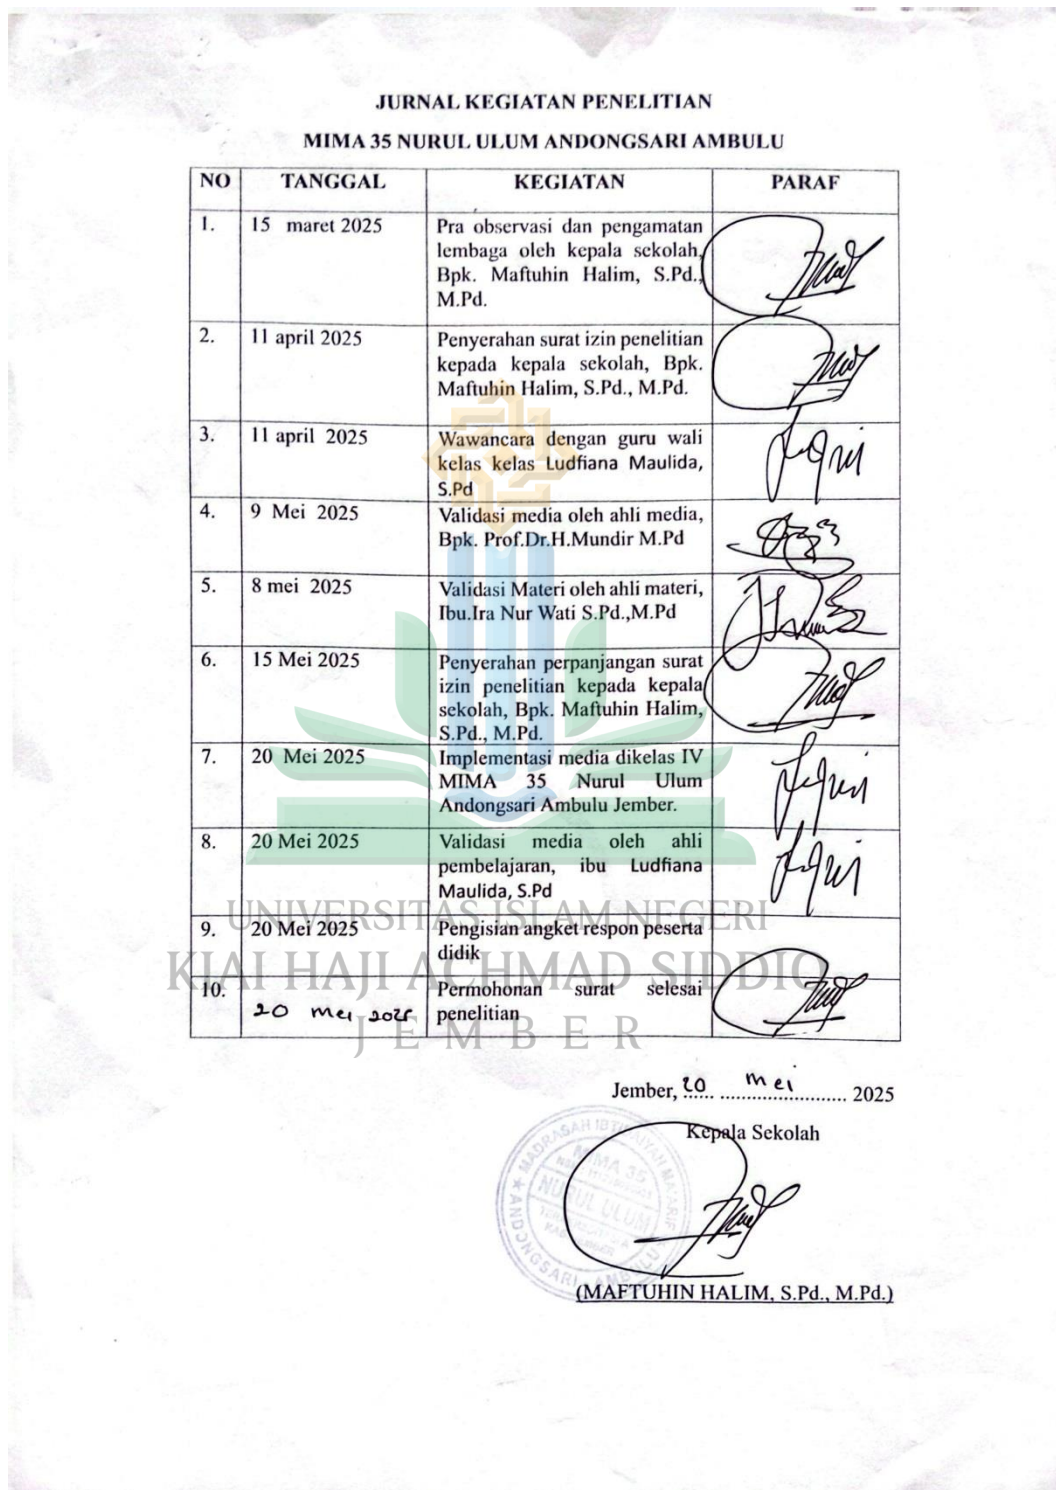 JURNAL KEGIATAN PENELITIAN
MIMA 35 NURUL ULUM ANDONGSARI AMBULU
NO TANGGAL KEGIATAN PARAF
1. 15 maret 2025 Pra observasi dan pengamatan
lembaga oleh kepala sekolah,
Bpk. Maftuhin Halim, S.Pd.,
M.Pd.
2. 11 april 2025 Penyerahan surat izin penelitian
kepada kepala sekolah, Bpk.
Maftuhin Halim, S.Pd., M.Pd.
3. 11 april 2025 Wawancara dengan guru wali
kelas kelas Ludfiana Maulida,
S.Pd
4. 9 Mei 2025 Validasi media oleh ahli media,
Bpk. Prof.Dr.H.Mundir M.Pd
5. 8 mei 2025 Validasi Materi oleh ahli materi,
Ibu.Ira Nur Wati S.Pd.,M.Pd
6. 15 Mei 2025 Penyerahan perpanjangan surat
izin penelitian kepada kepala
sekolah, Bpk. Maftuhin Halim,
S.Pd., M.Pd.
7. 20 Mei 2025 Implementasi media dikelas IV
MIMA 35 Nurul Ulum
Andongsari Ambulu Jember.
8. 20 Mei 2025 Validasi media oleh ahli
pembelajaran, ibu Ludfiana
Maulida, S.Pd
UNIVERSITAS ISLAM NEGERI
9. 20 Mei 2025 Pengisian angket respon peserta
didik
KIAI HAJI ACHMAD SIDDIQ
10. 20 mei 2025 Permohonan surat selesai
penelitian
JEMBER
Jember, 20 mei 2025
Kepala Sekolah
MADRASAH IBTIDAIYAH MA'ARIF
MIMA 35
NURUL ULUM
ANDONGSARI - AMBULU
(MAFTUHIN HALIM, S.Pd., M.Pd.)